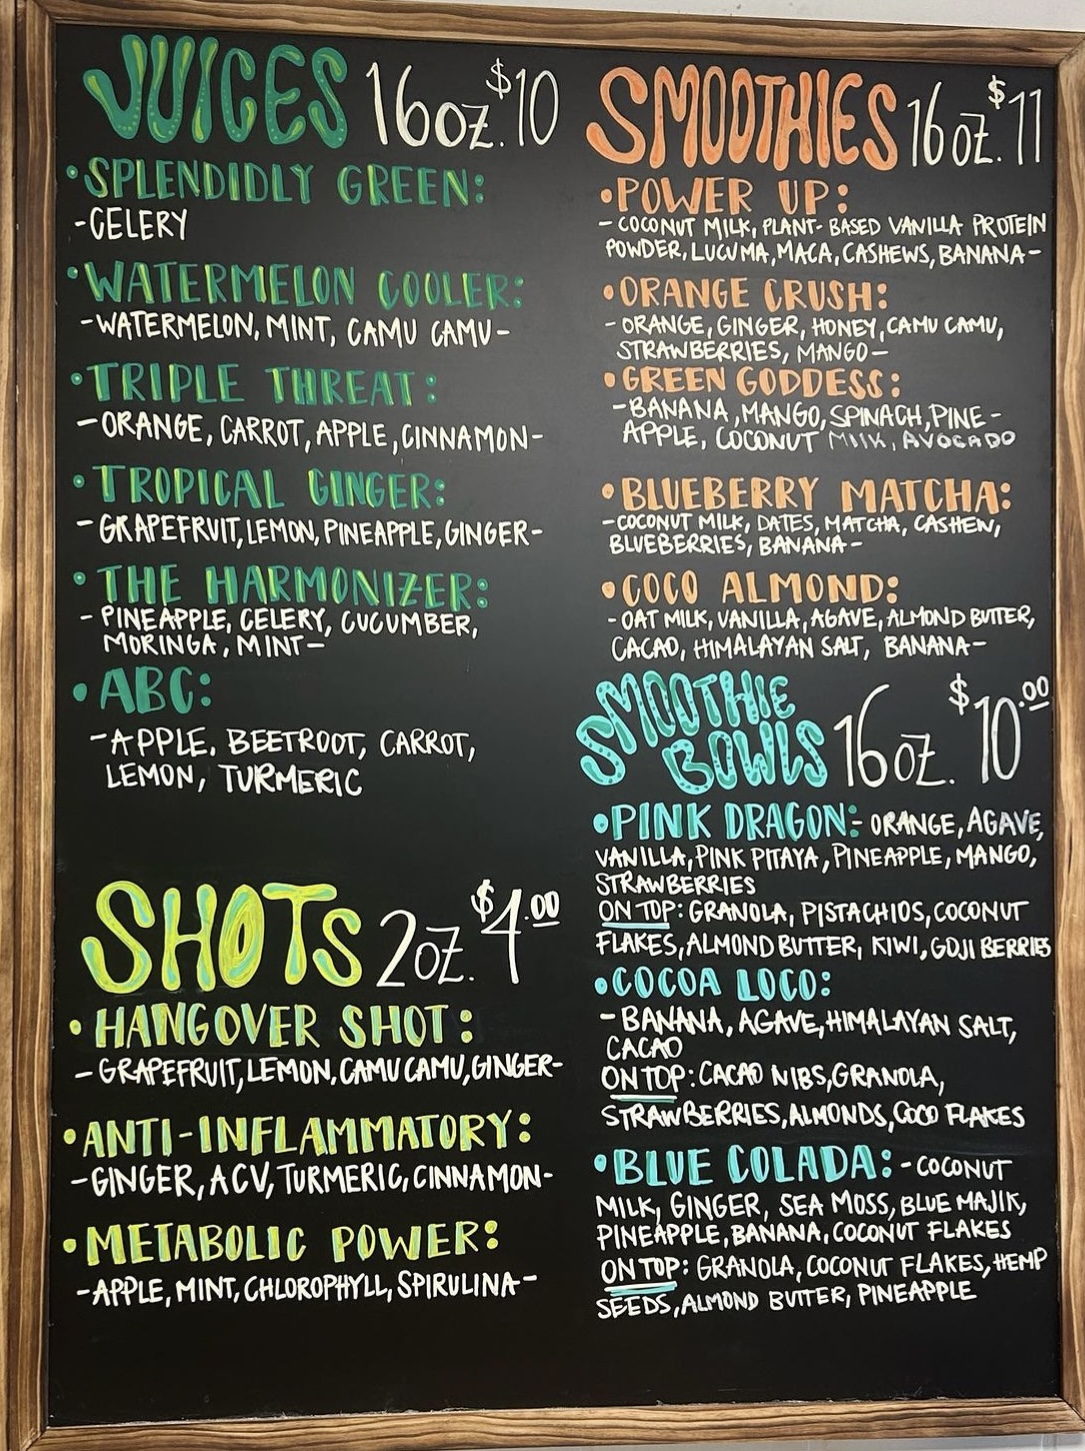 JUICES 16oz. $10
•SPLENDIDLY GREEN:
-CELERY
•WATERMELON COOLER:
-WATERMELON, MINT, CAMU CAMU-
•TRIPLE THREAT:
-ORANGE, CARROT, APPLE, CINNAMON-
•TROPICAL GINGER:
-GRAPEFRUIT, LEMON, PINEAPPLE, GINGER-
•THE HARMONIZER:
-PINEAPPLE, CELERY, CUCUMBER,
MORINGA, MINT-
•ABC:
-APPLE, BEETROOT, CARROT,
LEMON, TURMERIC
SHOTS 2oz. $4.00
•HANGOVER SHOT:
-GRAPEFRUIT, LEMON, CAMU CAMU, GINGER-
•ANTI-INFLAMMATORY:
-GINGER, ACV, TURMERIC, CINNAMON-
•METABOLIC POWER:
-APPLE, MINT, CHLOROPHYLL, SPIRULINA-
SMOOTHIES 16oz. $11
•POWER UP:
-COCONUT MILK, PLANT-BASED VANILLA PROTEIN
POWDER, LUCUMA, MACA, CASHEWS, BANANA-
•ORANGE CRUSH:
-ORANGE, GINGER, HONEY, CAMU CAMU,
STRAWBERRIES, MANGO-
•GREEN GODDESS:
-BANANA, MANGO, SPINACH, PINE-
APPLE, COCONUT MILK, AVOCADO
•BLUEBERRY MATCHA:
-COCONUT MILK, DATES, MATCHA, CASHEW,
BLUEBERRIES, BANANA-
•COCO ALMOND:
-OAT MILK, VANILLA, AGAVE, ALMOND BUTTER,
CACAO, HIMALAYAN SALT, BANANA-
SMOOTHIE
BOWLS 16oz. $10.00
•PINK DRAGON:- ORANGE, AGAVE,
VANILLA, PINK PITAYA, PINEAPPLE, MANGO,
STRAWBERRIES
ON TOP: GRANOLA, PISTACHIOS, COCONUT
FLAKES, ALMOND BUTTER, KIWI, GOJI BERRIES
•COCOA LOCO:
-BANANA, AGAVE, HIMALAYAN SALT,
CACAO
ON TOP: CACAO NIBS, GRANOLA,
STRAWBERRIES, ALMONDS, COCO FLAKES
•BLUE COLADA:-COCONUT
MILK, GINGER, SEA MOSS, BLUE MAJIK,
PINEAPPLE, BANANA, COCONUT FLAKES
ON TOP: GRANOLA, COCONUT FLAKES, HEMP
SEEDS, ALMOND BUTTER, PINEAPPLE